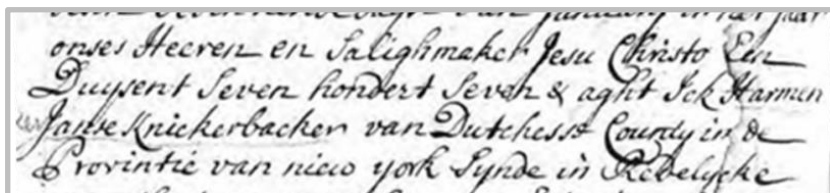 in het jaar
onses Heeren en Salighmaker Jesu Christo Een
Duysent Seven hondert Seven & aght Ick Harmen
Janse Knickerbacker van Dutchess County in de
Provintie van nieu york Synde in Redelycke